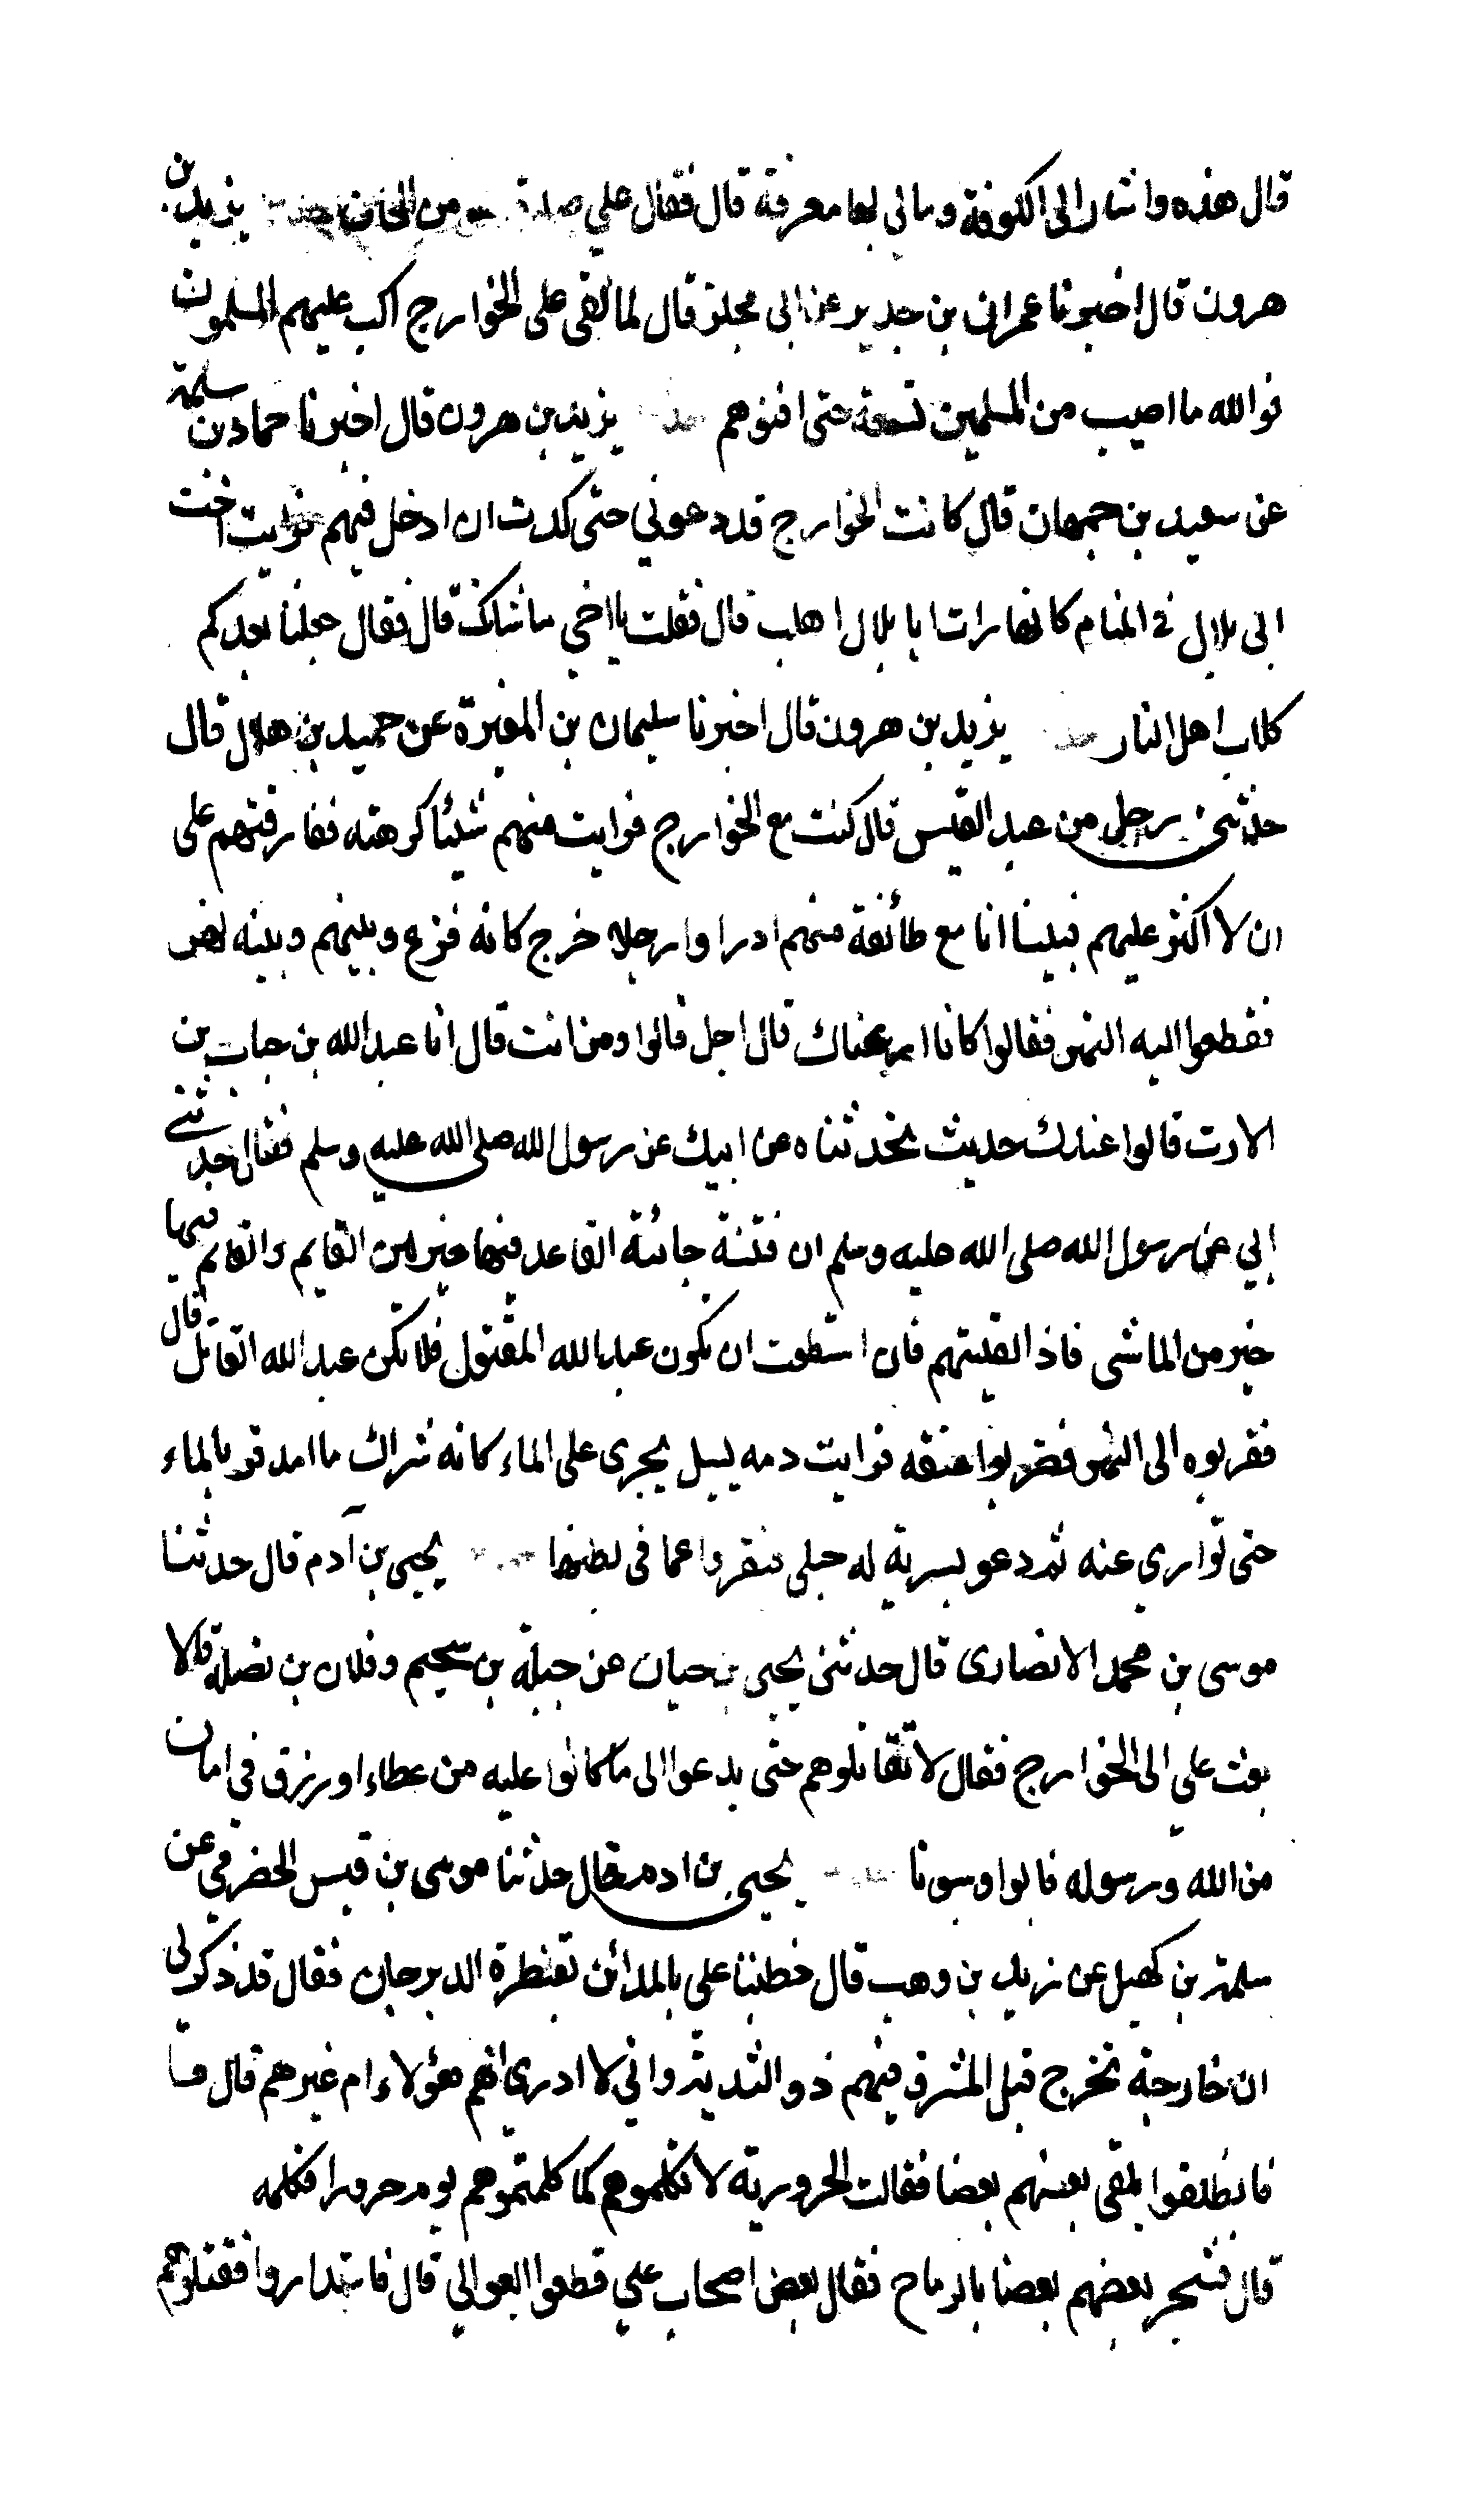 قال هذه واشار الى الكوفة ومالي بها معرفة قال فقال علي صدق هو من الجان يزيد بن
هرون قال اخبرنا عمران بن حدير عن ابى مجلز قال لما لقى على الخوارج اكب عليهم المسلمون
فوالله ما اصيب من المسلمين تسعة حتى افنوهم حدثنا يزيد بن هرون قال اخبرنا حماد بن سلمة
عن سعيد بن جمهان قال كانت الخوارج قد دعوني حتى كدت ان ادخل فيهم فرايت اخت
ابى بلال في المنام كانها رات ابا بلال اهلب قال فقلت يا اخي ما شانك قال فقال جعلنا بعدكم
كلاب اهل النار حدثنا يزيد بن هرون قال اخبرنا سليمان بن المغيرة عن حميد بن هلال قال
حدثني رجل من عبد القيس قال كنت مع الخوارج فرايت منهم شيئا كرهته ففارقتهم على
ان لا اكثر عليهم فبينا انا مع طائفة منهم اذ راوا رجلا خرج كانه فزع وبينهم وبينه نهر
فقطعوا اليه النهر فقالوا كانا رعناك قال اجل قالوا ومن انت قال انا عبد الله بن خباب بن
الارت قالوا عندك حديث تحدثناه عن ابيك عن رسول الله صلى الله عليه وسلم فقال حدثني
ابي عن رسول الله صلى الله عليه وسلم ان فتنة جائية القاعد فيها خير من القايم والقايم فيها
خير من الماشى فاذا لقيتهم فان استطعت ان تكون عبد الله المقتول فلا تكن عبد الله القاتل قال
فقربوه الى النهر فضربوا عنقه فرايت دمه يسيل يجرى على الماء كانه شراك ما امدقر بالماء
حتى توارى عنه ثم دعو بسرية له حبلى فبقروا عما في بطنها حدثنا يحيى بن آدم قال حدثنا
موسى بن محمد الانصارى قال حدثنى يحيى بن حيان عن جبلة بن سحيم وفلان بن نضلة قالا
بعث علي الى الخوارج فقال لا تقاتلوهم حتى يدعوا الى ما كانوا عليه من عطاء او رزق في امان
من الله ورسوله فابوا وسبونا حدثنا يحيى بن ادم قال حدثنا موسى بن قيس الحضرمي عن
سلمة بن كهيل عن زيد بن وهب قال خطبنا على بالمدائن بقنطرة الديرجان فقال قد ذكر لى
ان خارجة تخرج قبل المشرق فيهم ذو الثدية واني لا ادرى اهم هؤلاء ام غيرهم قال
فانطلقوا يلقى بعضهم بعضا فقالت الحرورية لا تكلموهم كما كلمتموهم يوم حرورا فكلمه
قال فشجر بعضهم بعضا بالرماح فقال بعض اصحاب علي قطعوا العوالي قال فاستداروا فقتلوهم